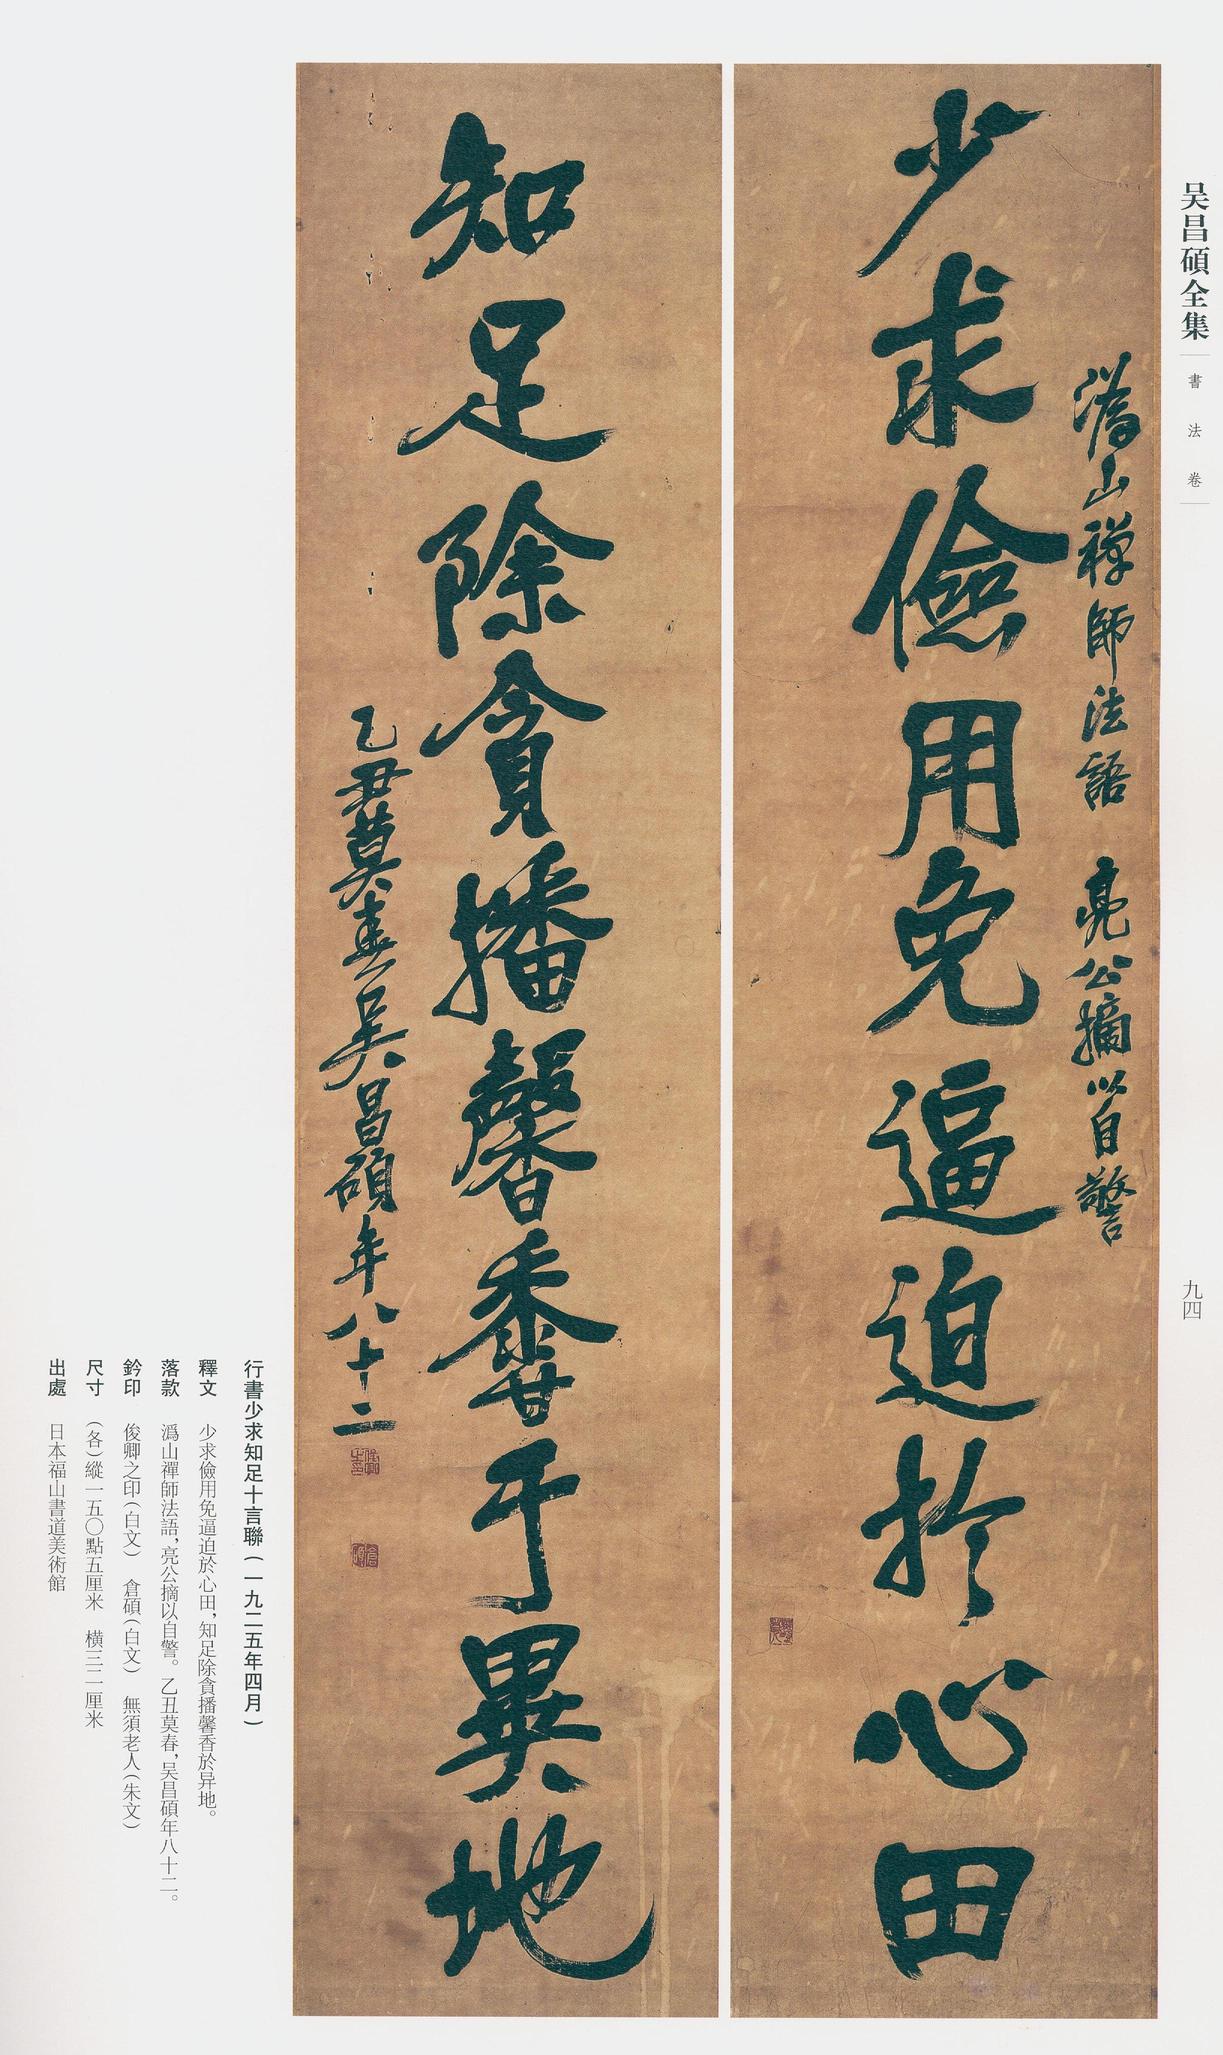 吴昌碩全集
書法卷
九四
潙山禪師法語 亮公摘以自警
少求儉用免逼迫於心田
知足除貪播馨香于異地
乙丑莫春吴昌碩年八十二
行書少求知足十言聯（一九二五年四月）
釋文 少求儉用免逼迫於心田，知足除貪播馨香於异地。
落款 潙山禪師法語，亮公摘以自警。乙丑莫春，吴昌碩年八十二。
鈐印 俊卿之印（白文） 倉碩（白文） 無須老人（朱文）
尺寸 （各）縱一五〇點五厘米 橫三二厘米
出處 日本福山書道美術館